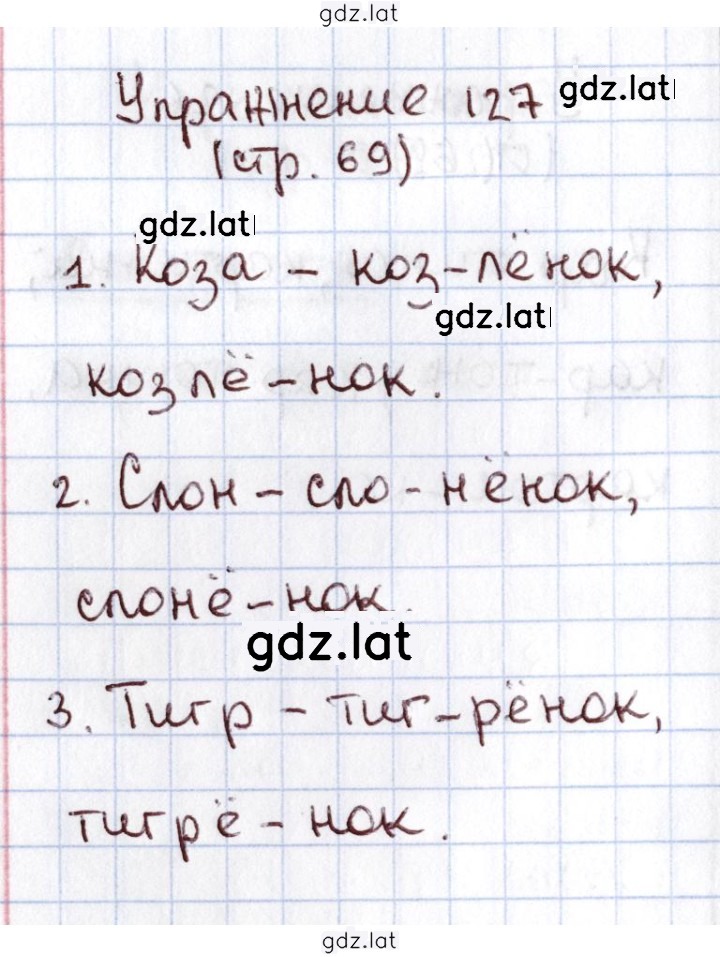 gdz.lat
Упражнение 127 gdz.lat
(стр. 69)
gdz.lat
1. Коза - коз-лёнок,
gdz.lat
козлё-нок.
2. Слон - сло-нёнок,
слонё-нок.
gdz.lat
3. Тигр - тиг-рёнок,
тигрё-нок.
gdz.lat